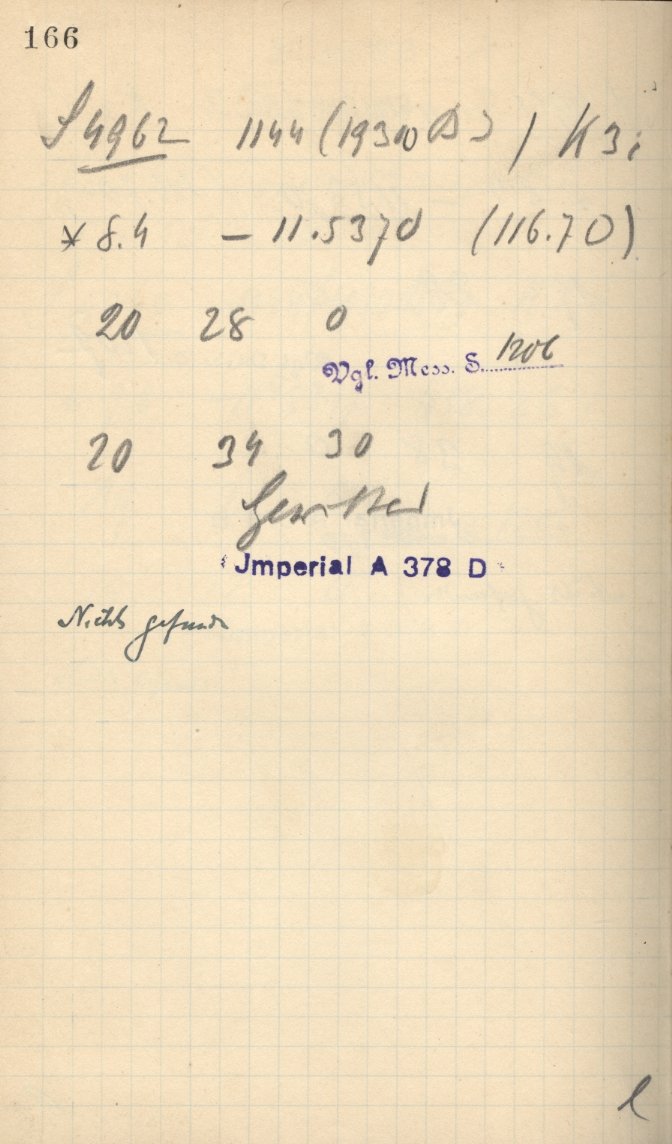 166
S 4962 1144 (1930 OB) / K3;
* 8.4 – 11.5370 (116.70)
20 28 0
Vgl. Mess. S. 1206
20 34 30
Gewitter
Jmperial A 378 D
Nichts gefunden
l